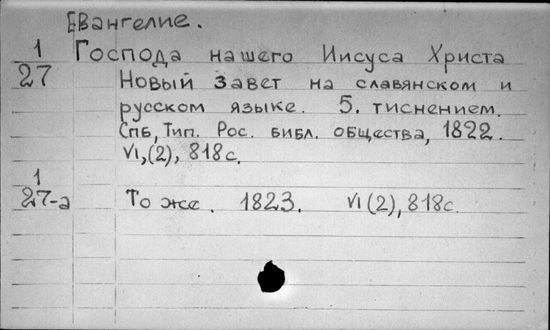 Евангелие.
1 Господа нашего Иисуса Христа
27 Новый Завет на славянском и
русском языке. 5. тиснением.
СПб, Тип. Рос. библ. общества, 1822.
VI,(2), 818с.
1
27-а То же. 1823. VI(2), 818с.